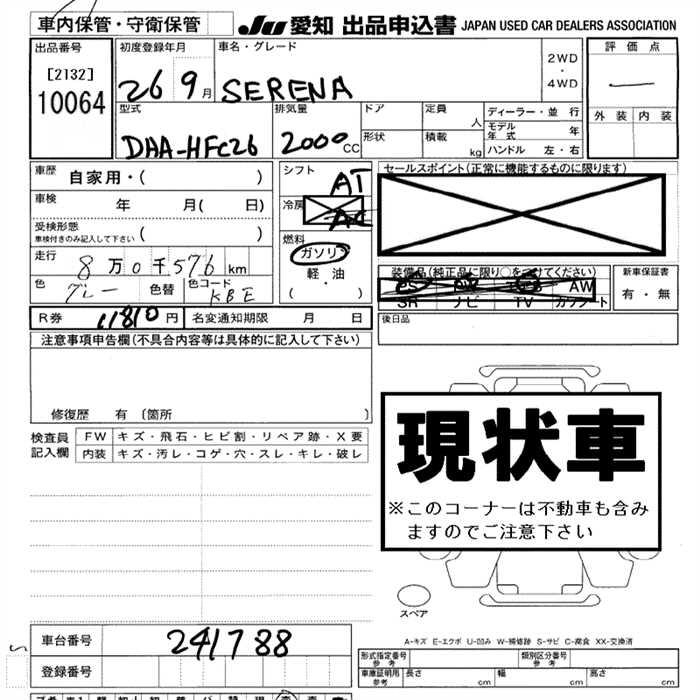 車内保管・守衛保管
JU 愛知 出品申込書 JAPAN USED CAR DEALERS ASSOCIATION
出品番号
[2132]
10064
初度登録年月
26 9月
車名・グレード
SERENA
2WD
・
4WD
評価点
外装 内装
型式
DAA-HFC26
排気量
2000CC
ドア
形状
定員 人
積載 kg
ディーラー・並行
モデル年式 年
ハンドル 左・右
車歴 自家用・( )
車検 年 月( 日)
受検形態
車検付きのみ記入して下さい ( )
走行 8万0千576km
色 グレー 色替 色コード KBE
シフト AT
冷房 AC
燃料
ガソリン
軽・油
( )
セールスポイント(正常に機能するものに限ります)
装備品(純正品に限り○をつけてください)
AW
SR ナビ TV カワシート
新車保証書
有・無
R券 11810円 名変通知期限 月 日
後日品
注意事項申告欄(不具合内容等は具体的に記入して下さい)
修復歴 有〔箇所 〕
検査員記入欄
FW キズ・飛石・ヒビ割・リペア跡・X要
内装 キズ・汚レ・コゲ・穴・スレ・キレ・破レ
現状車
※このコーナーは不動車も含み
ますのでご注意下さい
スペア
A-キズ E-エクボ U-凹み W-補修跡 S-サビ C-腐食 XX-交換済
車台番号 241788
登録番号
形式指定番号 参考 類別区分番号 参考
車庫証明用 参考 長さ cm 幅 cm 高さ cm